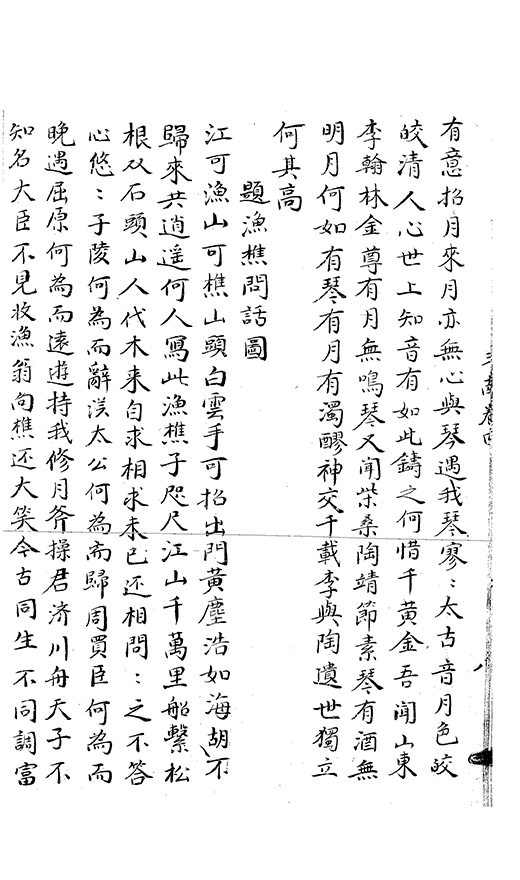 有意招月來月亦無心與琴遇我琴寥〻太古音月色皎
皎清人心世上知音有如此鑄之何惜千黃金吾聞山東
李翰林金尊有月無鳴琴又聞柴桑陶靖節素琴有酒無
明月何如有琴有月有濁醪神交千載李與陶遺世獨立
何其高
題漁樵問話圖
江可漁山可樵山頭白雲手可招出門黃塵浩如海胡不
歸來共逍遥何人寫此漁樵子咫尺江山千萬里船繫松
根双石頭山人代木来自求相求未已还相問〻之不答
心悠〻子陵何為而辭漢太公何為而歸周買臣何為而
晚遇屈原何為而遠遊持我修月斧操君济川舟天子不
知名大臣不見收漁翁向樵还大笑今古同生不同調富